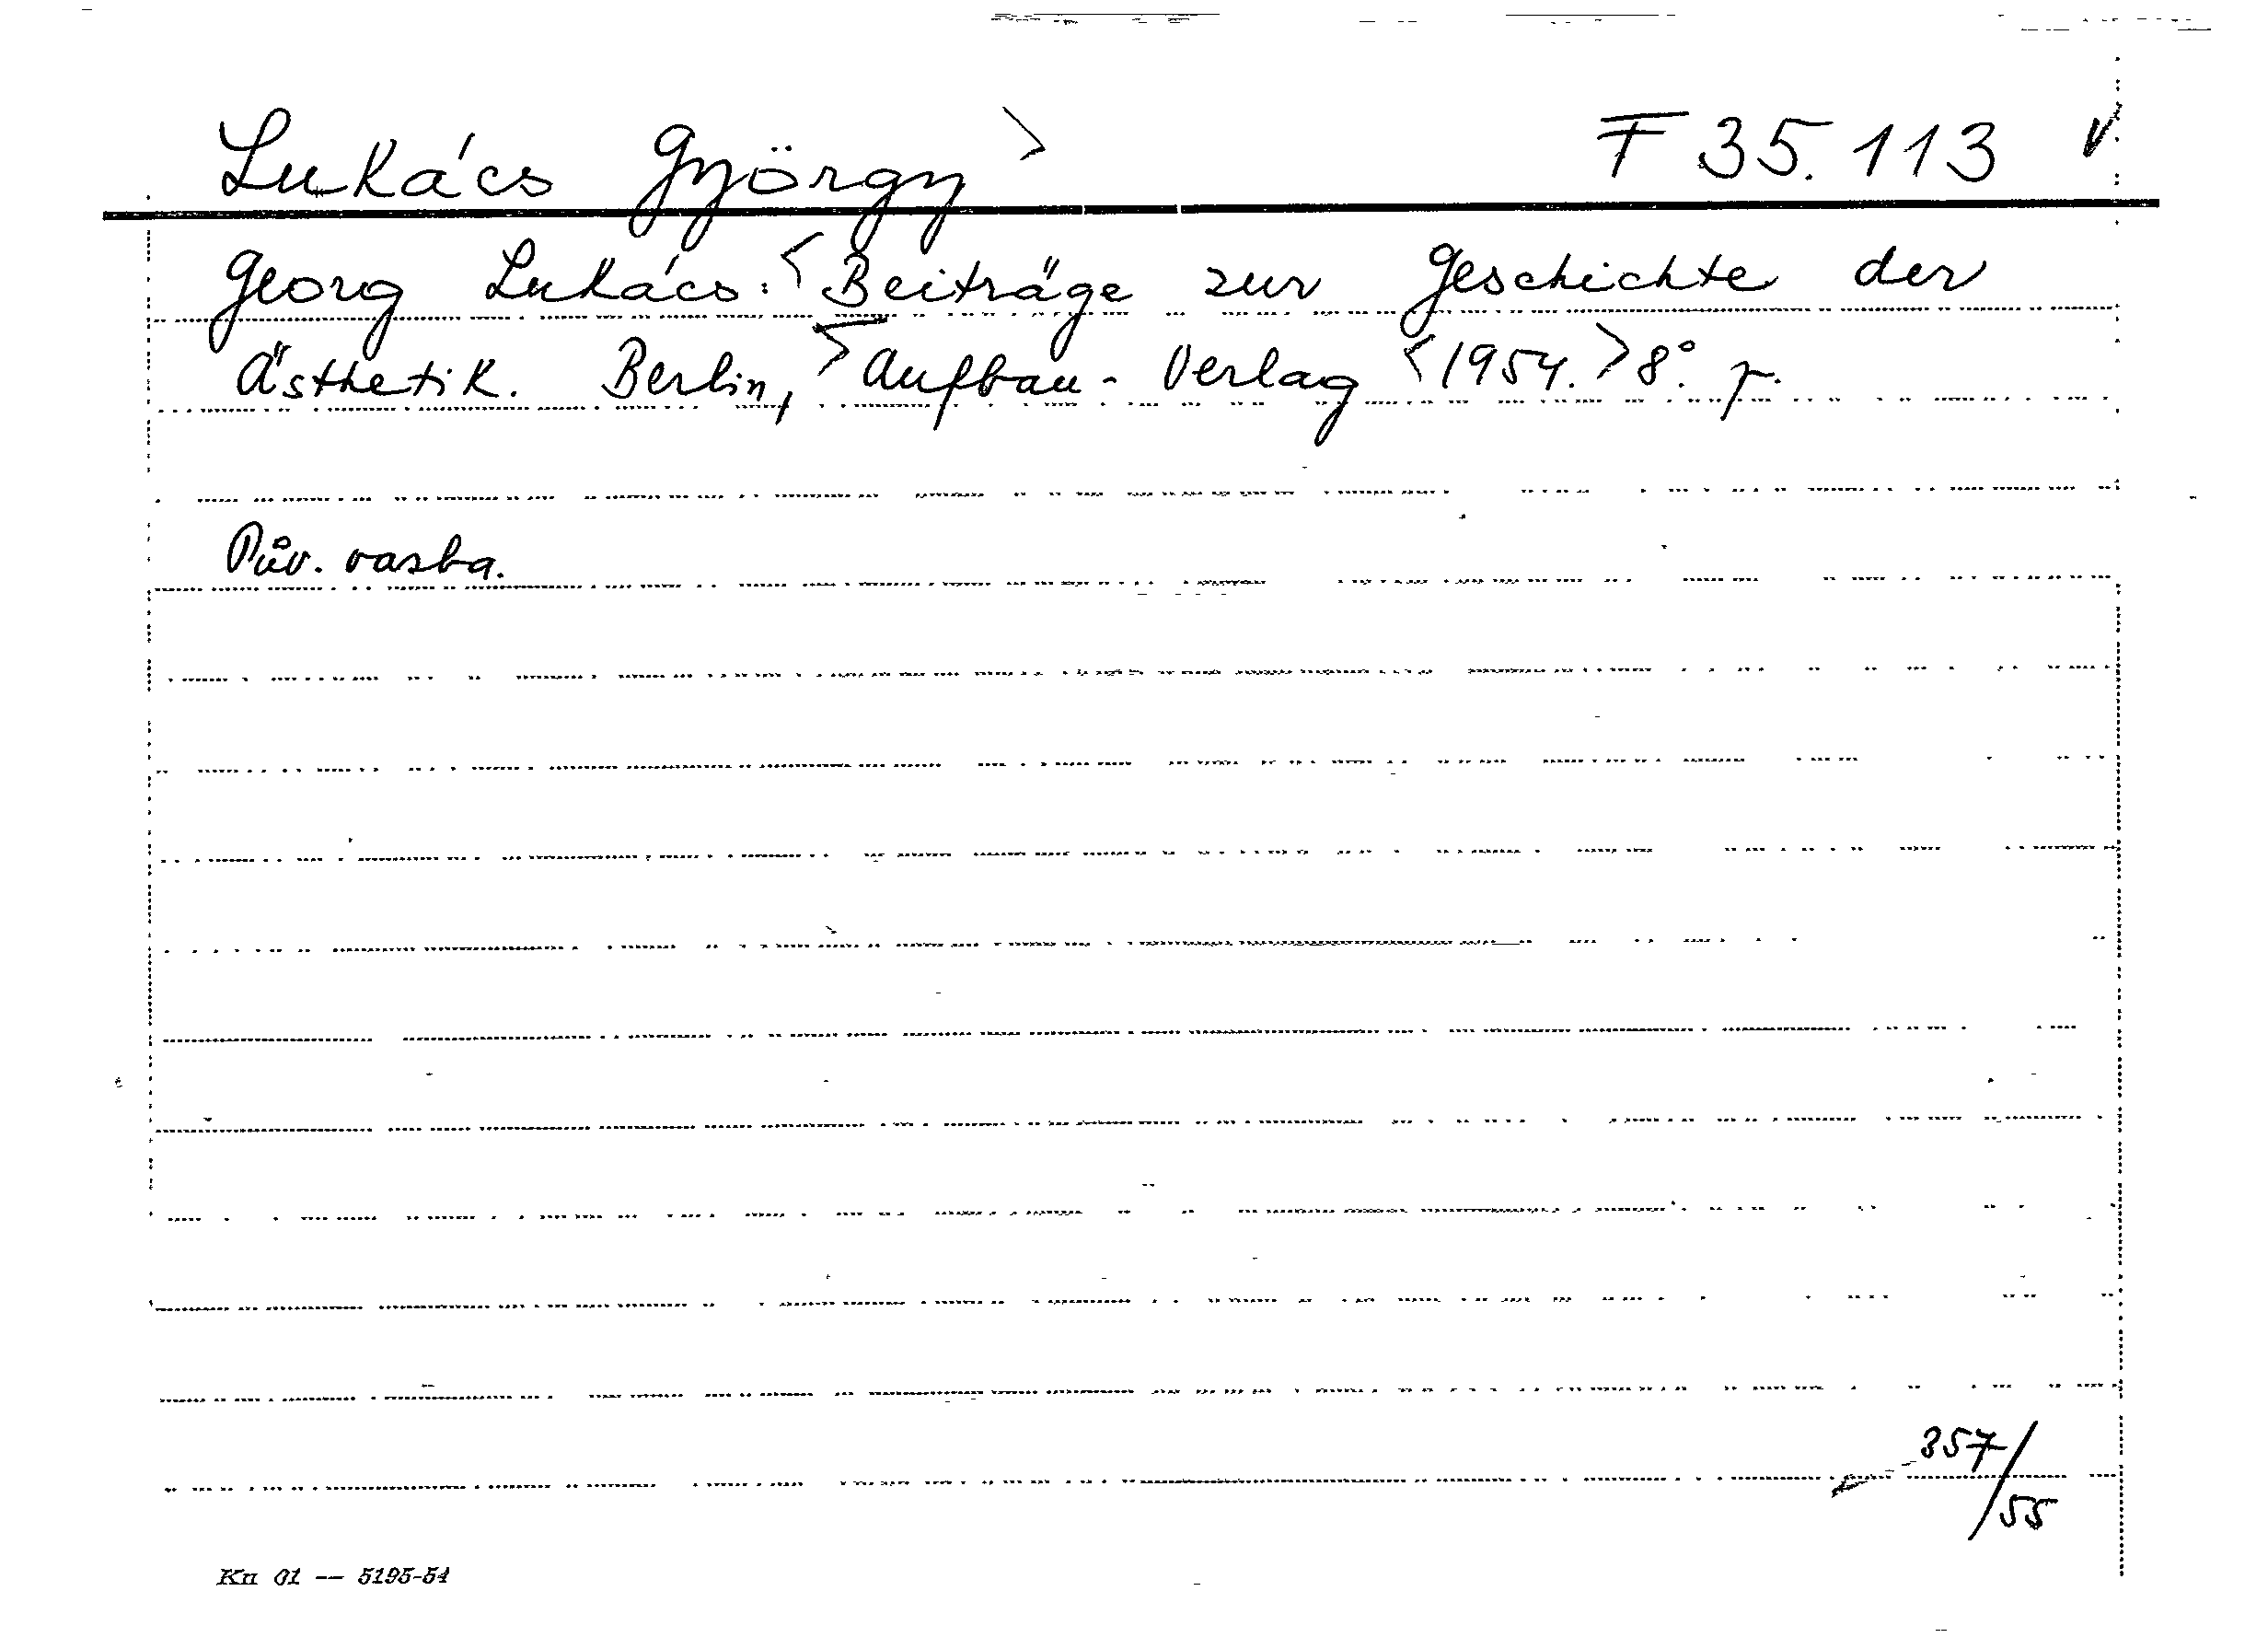 Lukács György> F 35.113 V
Georg Lukács: <Beiträge zur Geschichte der
Ästhetik. Berlin, > Aufbau-Verlag <1954.> 8°. p.
Pův. vazba.
357/55
Kn 01 — 5195-54